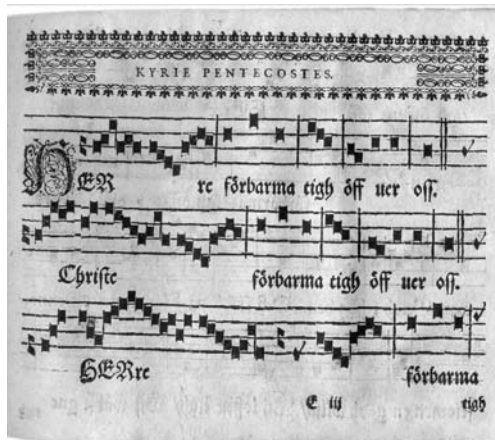 KYRIE PENTECOSTES.
HERre förbarma tigh öff uer oss.
Christe förbarma tigh öff uer oss.
HERre förbarma
E iij tigh